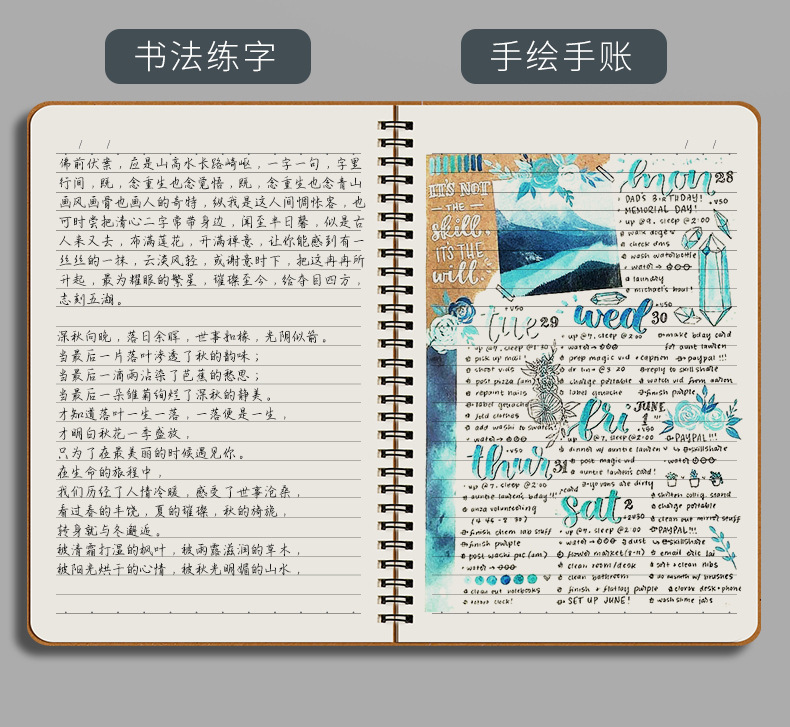 书法练字
手绘手账
佛前伏案，应是山高水长路崎岖，一字一句，字里
行间，既，念重生也念觉悟，既，念重生也念青山
画风画骨也画人的奇特，纵我是这人间惆怅客，也
可时尝把清心二字常带身边，闲至半日馨，似是古
人来又去，布满莲花，开满禅意，让你能感到有一
丝丝的一抹，云淡风轻，或谢意时下，把这冉冉所
升起，最为耀眼的繁星，璀璨至今，给夺目四方，
志刻五湖。
深秋向晚，落日余晖，世事和椽，光阴似箭。
当最后一片落叶渗透了秋的韵味；
当最后一滴雨沾染了芭蕉的愁思；
当最后一朵雏菊绚烂了深秋的静美。
才知道落叶一生一落，一落便是一生，
才明白秋花一季盛放，
只为了在最美丽的时候遇见你。
在生命的旅程中，
我们历经了人情冷暖，感受了世事沧桑，
看过春的丰饶，夏的璀璨，秋的旖旎，
转身就与冬邂逅。
被清霜打湿的枫叶，被雨露滋润的草木，
被阳光烘干的心情，被秋光明媚的山水，
IT'S NOT
THE
skill,
IT'S THE
will.
mon 28
+V50
DAD'S BIRTHDAY!
MEMORIAL DAY!
up @9, sleep @2:00
walk doges
check dms
wash waterbottle
water →
laundry
michael's haul!
tue 29
+V50
up @7, sleep @1:30
pick up mail
cheat vids
post pizza (am)
repaint nails
label gouache
fold clothes
add washi to swatch
water →
wed 30
up @7, sleep @2:00
water →
prep magic vid + caption
dr lin → @3:20
charge portable
label gouache
make bday card
for aunt lauren
paypal!!!
reply to skillshare
watch vid from aaren
finish purple
thur 31
+V50
up @7, sleep @2:00
auntie lauren's bday!!
anza volunteering
(4:45-8:30)
finish chem lab stuff
finish purple
post washi pac (am)
water →
clean out notebooks
clear clock!
fri JUNE 1
+V50
up @7, sleep @2:00
PAYPAL!!!
dinner w/ auntie lauren
skillshare
post magic vid
water →
auntie lauren's card!
upvans are dirty
sat 2
+2V50
up @7, sleep @2:00
PAYPAL!!!
water →
dust
skillshare
flower market (8-11)
email eric lai
clean room/desk
sort + clean nibs
clean bathroom
30 minutes w/ brushes
finish + flatlay purple
clorox desk + phone
SET UP JUNE!
wash slime jars
charge portable
clean out mirror stuff